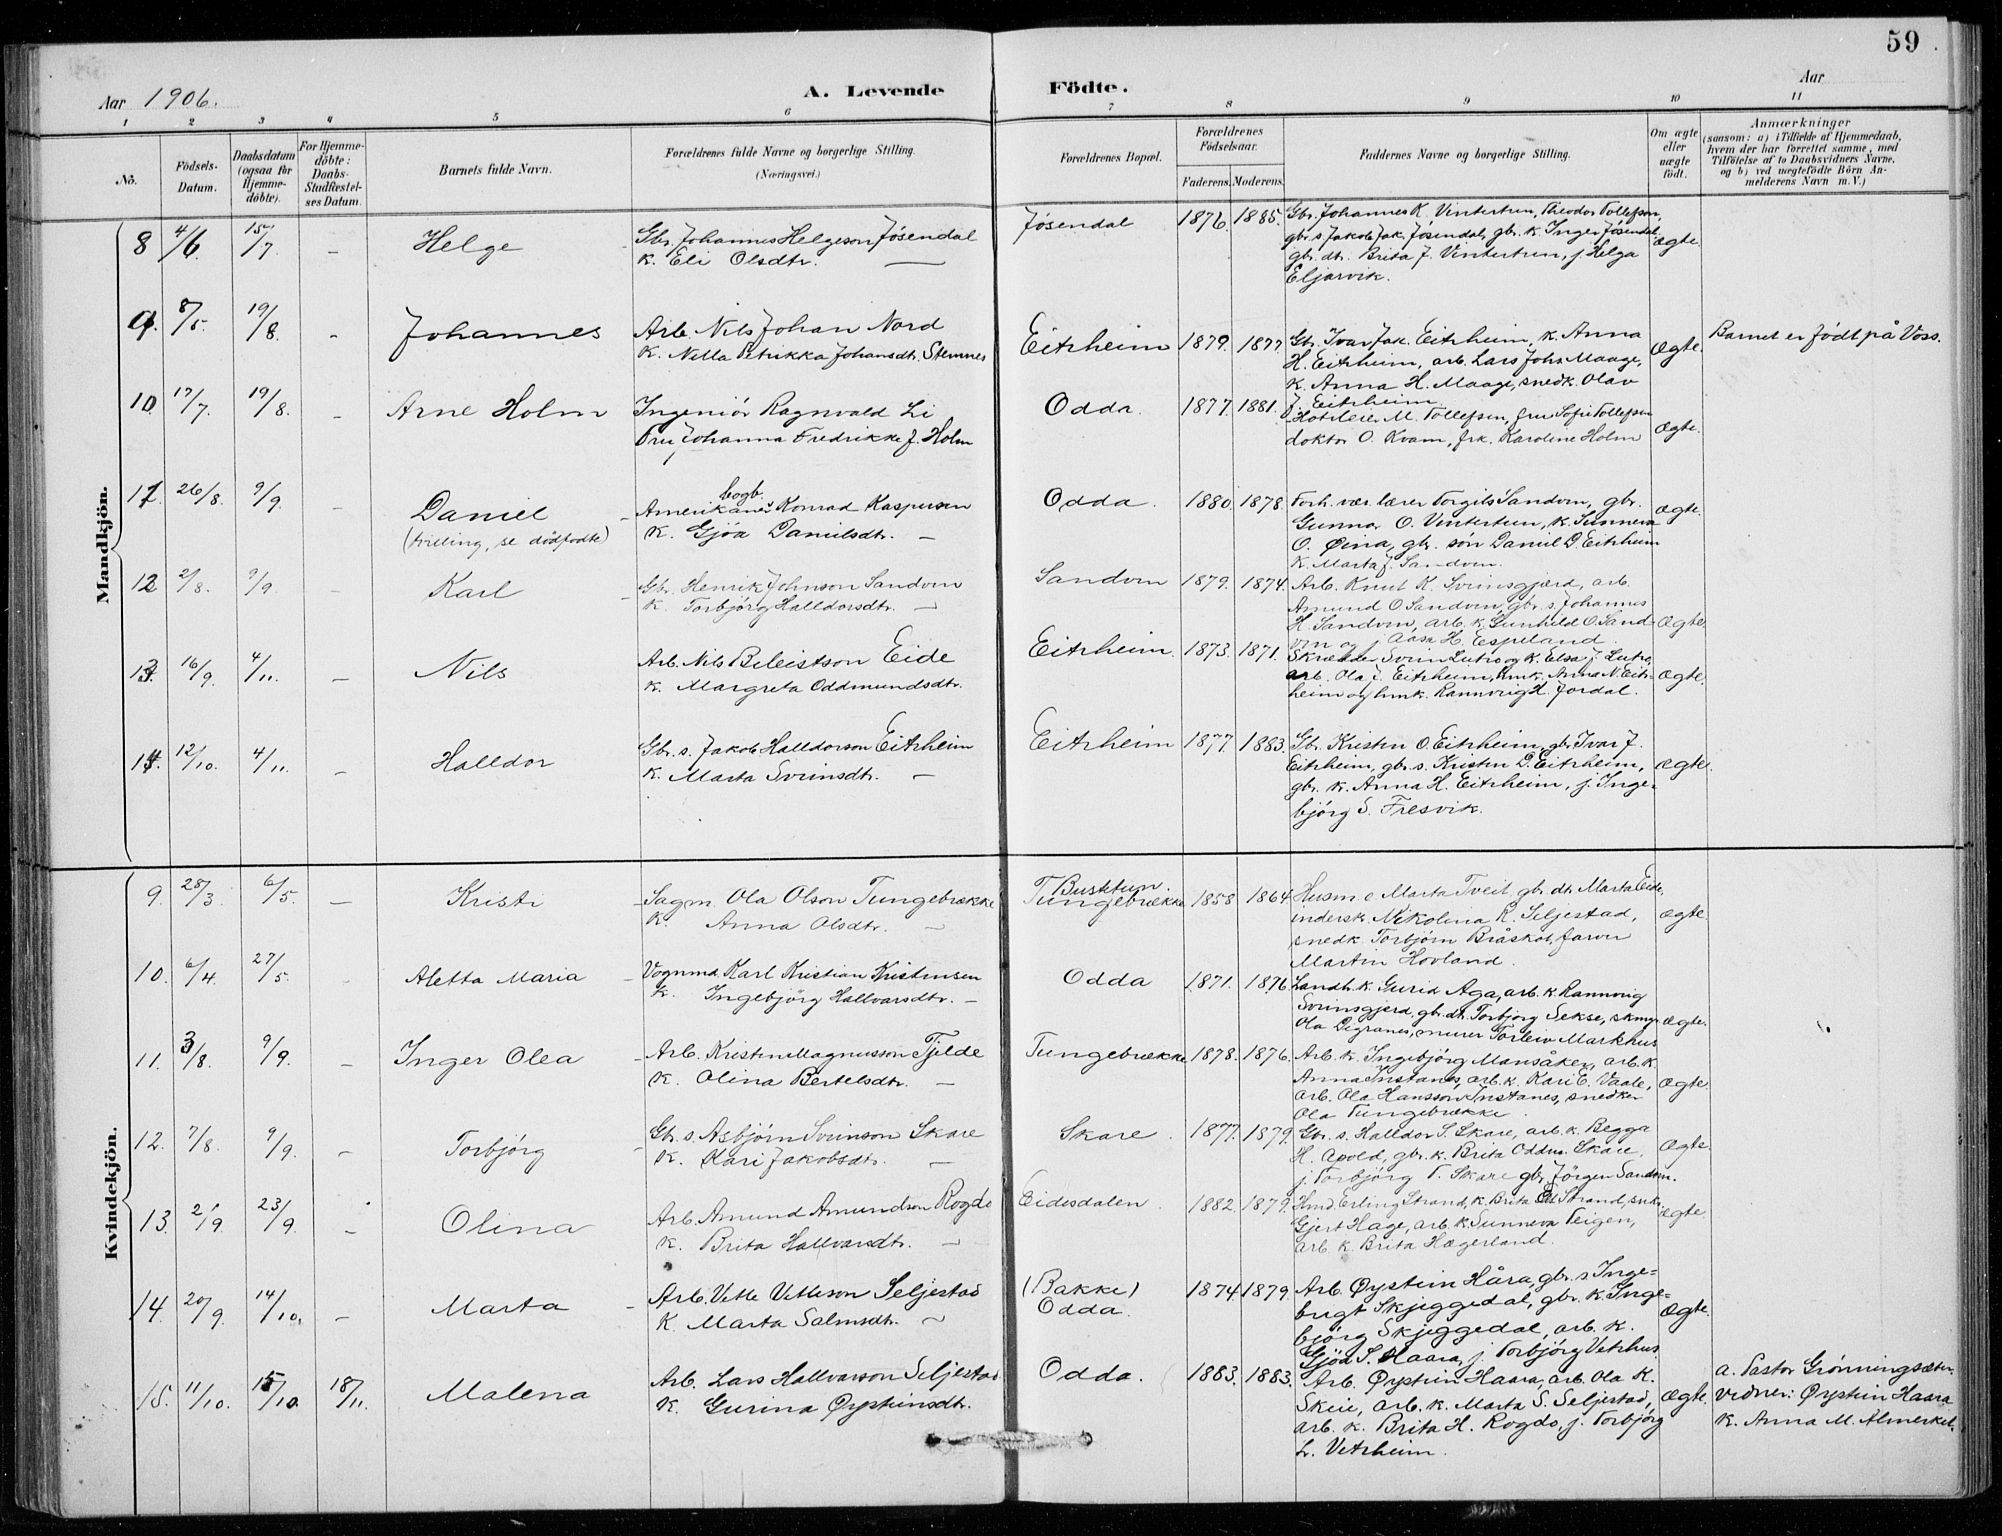 59
Aar 1906.
A. Levende Födte.
Aar
1 2 3 4 5 6 7 8 9 10 11
No.
Födsels-Datum.
Daabsdatum (ogsaa for Hjemme-döbte).
For Hjemme-döbte: Daabs-Stadfæstel-ses Datum.
Barnets fulde Navn.
Forældrenes fulde Navne og borgerlige Stilling.
(Næringsvei.)
Forældrenes Bopæl.
Forældrenes Födselsaar.
Faderens. Moderens.
Faddernes Navne og borgerlige Stilling.
Om ægte eller uægte födt.
Anmærkninger
(saasom: a) i Tilfælde af Hjemmedaab, hvem der har forrettet samme, med Tilföielse af to Daabsvidners Navne, og b) ved uægtefödte Börn An-melderens Navn m. V.)
Mandkjön.
8 4/6. 15/7 - Helge
Gbr. Johannes Helgeson Jösendal
K. Eli Olsdtr. —
Jösendal 1876. 1885.
Gbr. Johannes K. Vintertun, Theodor Tollefsen,
gbr. s Jakob Jak. Jösendal, gbr. k. Inger Jösendal,
gbr. dt. Brita J. Vintertun, j. Helga
Eljarvik.
ægte.
9. 8/5. 19/8. - Johannes
Arb. Nils Johan Nord
K. Nilla Petrikka Johansdt. Stemnes
Eitrheim 1879. 1877
Gbr. Ivar Jak. Eitrheim, k. Anna
H. Eitrheim, arb. Lars Johs Maage,
k. Anna H. Maage, snedk. Olav
J. Eitrheim
Ægte.
Barnet er født på Voss.
10. 17/7. 19/8. - Arne Holm
Ingeniör Ragnvald Li
Fru Johanna Fredrikke J. Holm
Odda. 1877. 1881.
Hoteleier M. Tollefsen, fru Sofie Tollefsen
doktor O. Kvam, frk. Karoline Holm
Ægte.
11. 26/8. 9/9. - Daniel
(tvilling, se dödfödte)
bogb.
Amerikaner Konrad Kaspersen
K. Gjöa Danielsdtr. —
Odda. 1880. 1878.
Forh. vær. lærer Torgils Sandven, gbr.
Gunnar O. Vintertun, k. Sunneva
O. Øina, gbr. søn Daniel D. Eitrheim
K. Marta J. Sandven.
Ægte.
12 2/8. 9/9. - Karl
Gbr. Henrik Johnson Sandven
K. Torbjörg Halldorsdtr. —
Sandven 1879. 1874.
Arb. Knut K. Sveinsgjærd, arb.
Amund O Sandven, gbr. s. Johannes
H. Sandven, arb. k. Gunhild O. Sand-
ven og j. Aasa H. Espeland.
Ægte.
13. 16/9. 4/11. - Nils
Arb. Nils Bileistson Eide
K. Margreta Oddmundsdtr.
Eitrheim. 1873. 1871.
Skrædder Svein Lutro og K. Elsa J. Lutro,
arb. Ola J. Eitrheim, hmk. Anna N. Eitr-
heim og hmk. Rannveig H. Jordal.
Ægte.
14. 12/10. 4/11. - Halldor
Gbr. s. Jakob Halldorson Eitrheim
K. Marta Sveinsdtr. —
Eitrheim 1877. 1883.
Gbr. Kristen O. Eitrheim, gbr. Ivar J.
Eitrheim, gbr. s. Kristen D. Eitrheim,
gbr. k. Anna H. Eitrheim, j. Inge-
björg S. Fresvik.
Ægte.
Kvindekjön.
9. 28/3. 6/5. - Kristi
Sagm. Ola Olson Tungebrække
K. Anna Olsdtr. —
Busktun.
Tungebrække 1858 1864
Husm. e Marta Tveit gbr. dt. Marta Eide,
indersk. Nikolina R. Seljestad,
snedk. Torbjörn Bråskot, farver
Martin Hovland.
ægte.
10. 6/4. 27/5. Aletta Maria
Vognmd. Karl Kristian Kristensen
K. Ingebjörg Hallvarsdtr. —
Odda 1871. 1876.
Landh. k. Gurid Aga, arb. k. Rannveig
Sveinsgjerd, gbr. dt. Torbjörg Sekse, skmgr.
Ola Digranes, murer Torleiv Markhus
ægte.
11. 3/8. 9/9. - Inger Olea
Arb. Kristen Magnusson Tjelde
K. Olina Bertelsdtr. —
Tungebrække 1878. 1876.
Arb. k. Ingebjörg Mansåker, arb. k.
Anna Instanes, arb. k. Kari E. Vaale,
arb. Ola Hansson Instanes, snedker
Ola Tungebrække.
Ægte.
12. 7/8. 9/9. - Torbjörg
Gbr. s. Asbjörn Sveinson Skare
K. Kari Jakobsdtr. —
Skare. 1877. 1879.
Gbr. s. Halldor S. Skare, arb. k. Begga
H. Apold, gbr. k. Brita Oddm. Skare,
j. Torbjörg T. Skare gbr. Jörgen Sandven.
Ægte.
13. 2/9. 23/9. - Olina
Arb. Amund Amundson Rogde
K. Brita Hallvarsdtr. —
Eidesdalen. 1882. 1879.
Hmd. Erling Strand, k. Brita Strand, snk.
Gjert Hage, arb. k. Sunneva Teigen,
arb. k. Brita Hægerland.
Ægte.
14. 20/9. 14/10. - Marta
Arb. Vetle Vetleson Seljestad
K. Marta Salmsdtr. —
(Bakke)
Odda. 1874 1879.
Arb. Øystein Håra, gbr. s. Inge-
brigt Skjeggedal, gbr. k. Inge-
björg Skjeggedal, arb. k.
Gjöa S. Haara, j. Torbjörg Vetrhus.
Ægte.
15. 11/10. 15/10. 18/11. Malena
Arb. Lars Hallvarson Seljestad
K. Gurina Øysteinsdtr.
Odda. 1883. 1883.
Arb. Øystein Haara, arb. Ola K.
Skeie, arb. k. Marta S. Seljestad,
arb. k. Brita H. Rogde, j. Torbjörg
L. Vetrheim.
Ægte.
a. Pastor Grönningsæter
vidner: Øystein Haara
K. Anna M. Almerket.